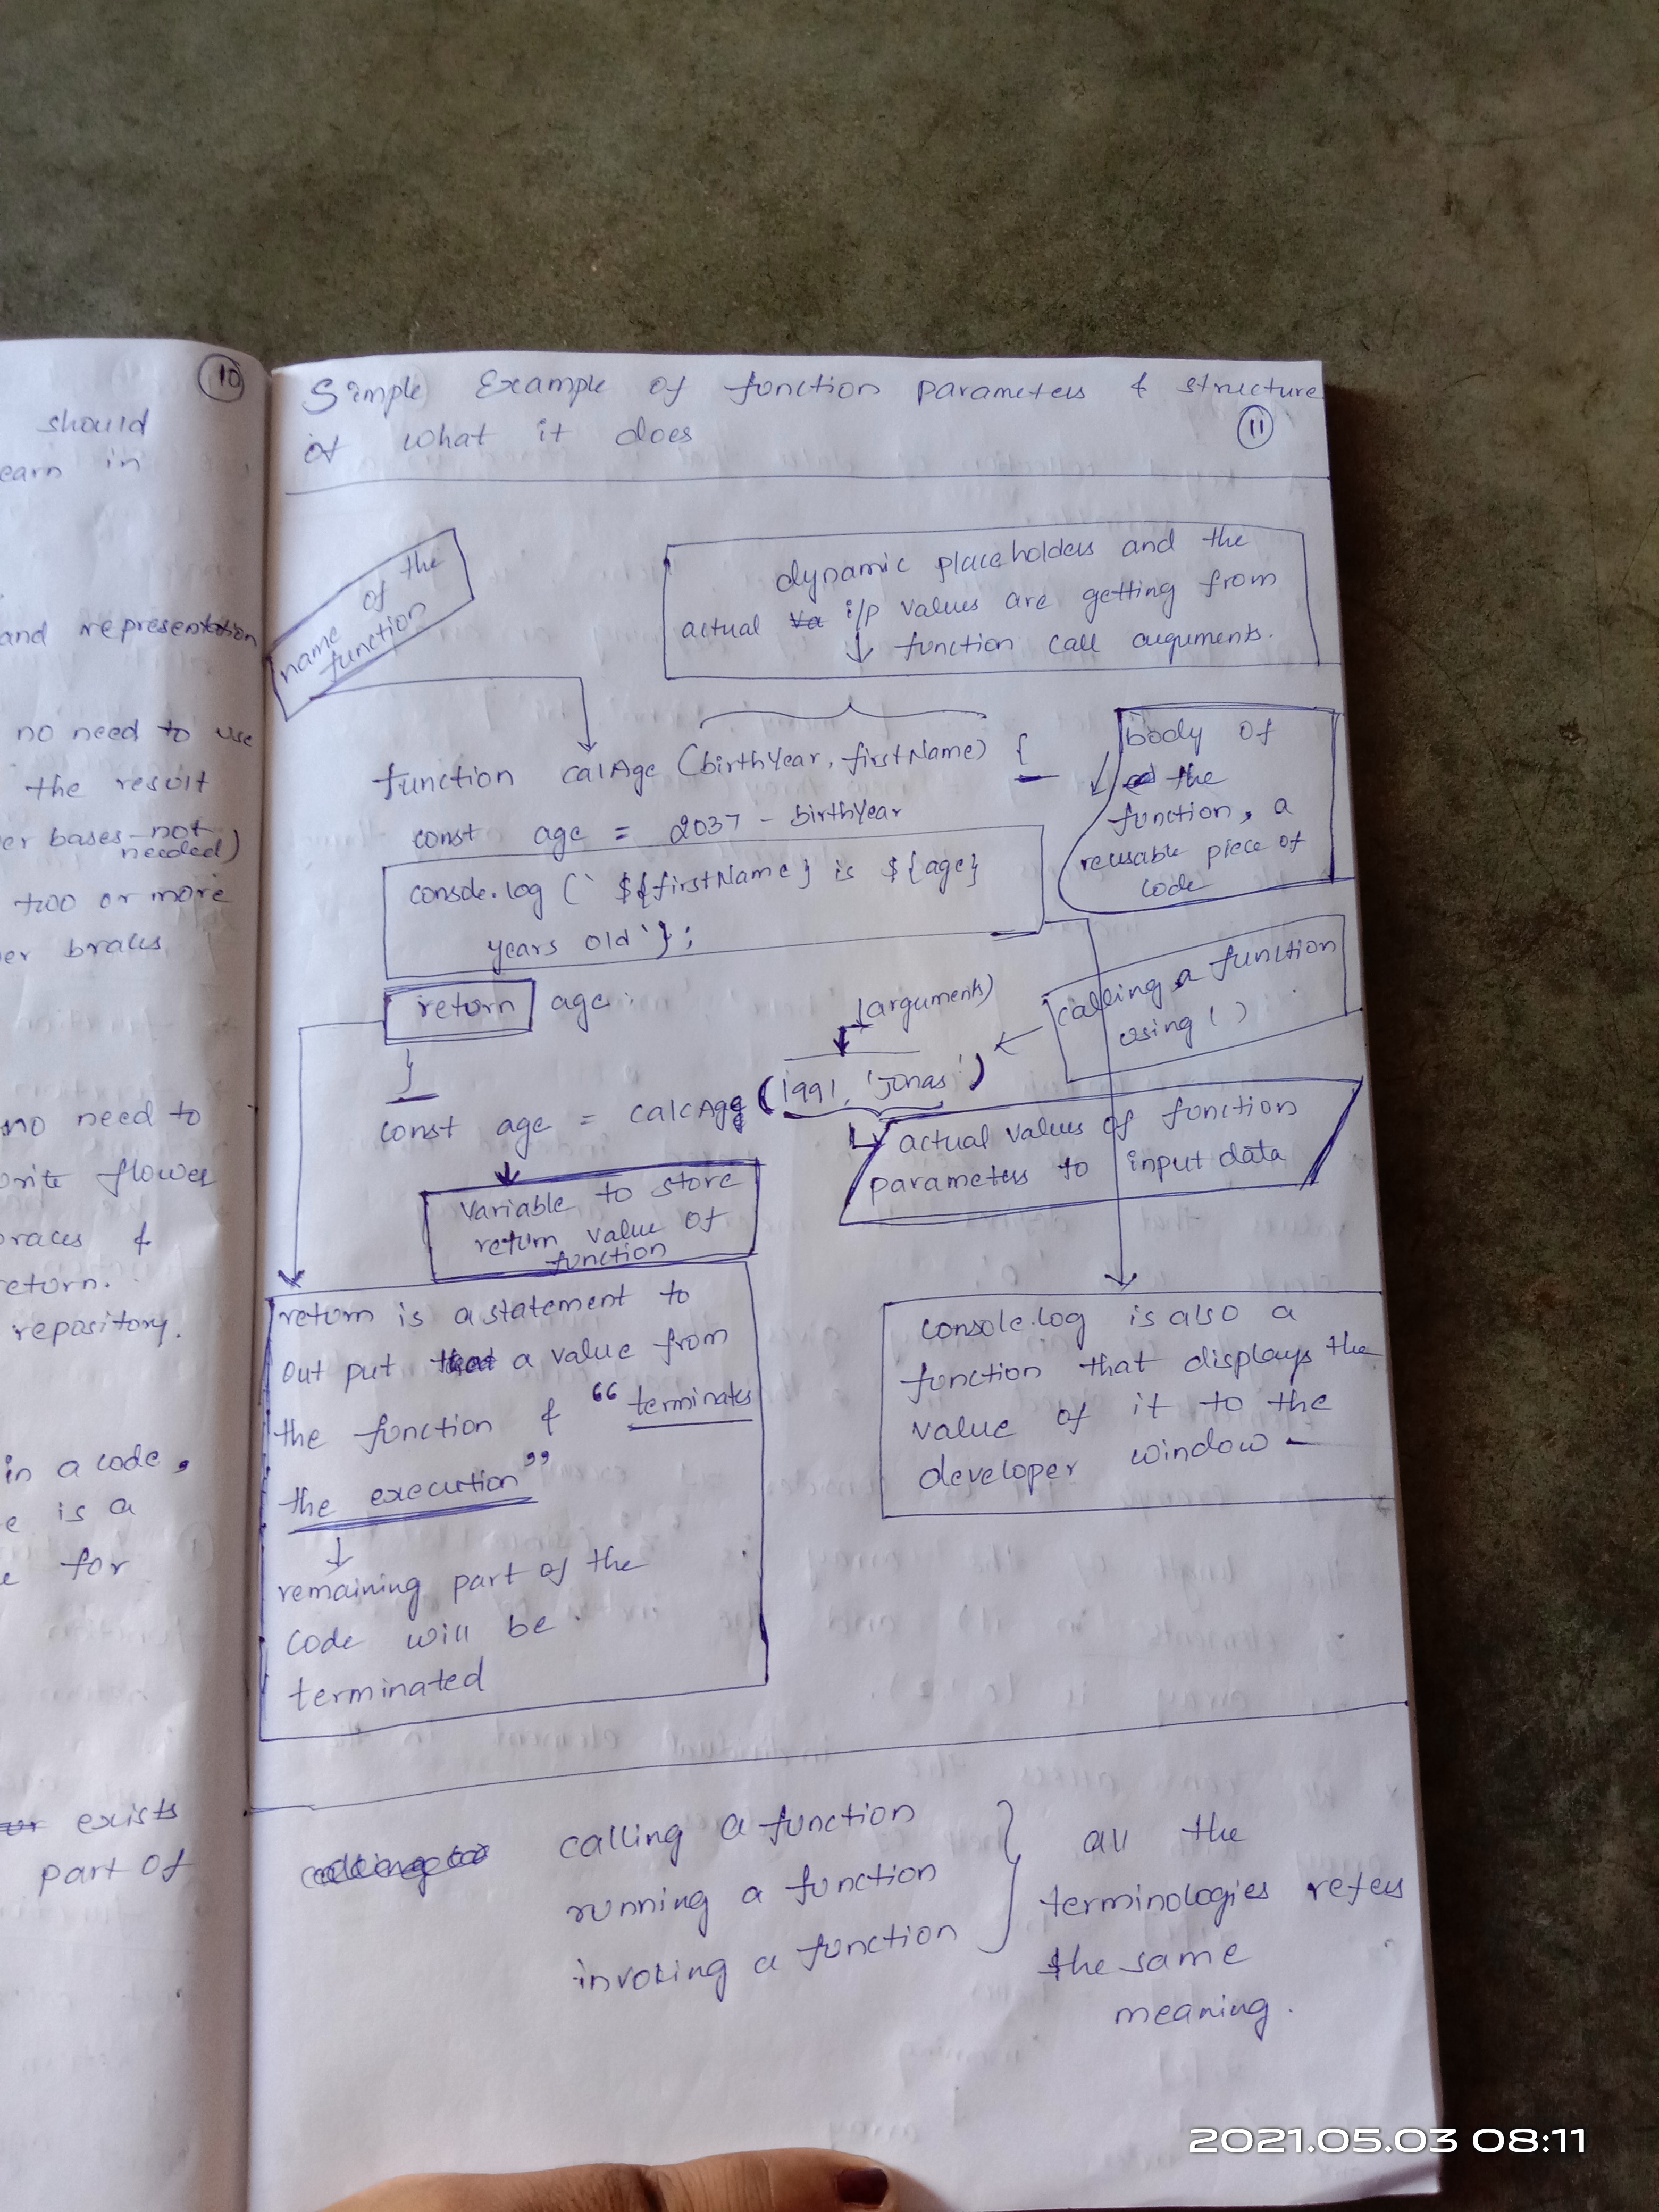 10
should
earn in
and representation
no need to use
the result
er bases - not needed)
two or more
er braces
no need to
orite flower
braces &
return.
repository.
in a code,
e is a
for
exists
part of
Simple Example of function parameters & structure
of what it does
11
name of the
function
dynamic placeholders and the
actual i/p values are getting from
function call auguments.
function calAge (birthYear, firstName) {
const age = 2037 - birthYear
console.log (` ${firstName} is ${age}
years old`};
return age;
}
body of
the
function, a
reusable piece of
code
(arguments)
calling a function
using ( )
const age = calcAge (1991, 'Jonas')
actual values of function
parameters to input data
variable to store
return value of
function
return is a statement to
out put a value from
the function & "terminates
the execution"
remaining part of the
code will be
terminated
console.log is also a
function that displays the
value of it to the
developer window
calling a function
running a function
invoking a function
all the
terminologies refers
the same
meaning.
2021.05.03 08:11